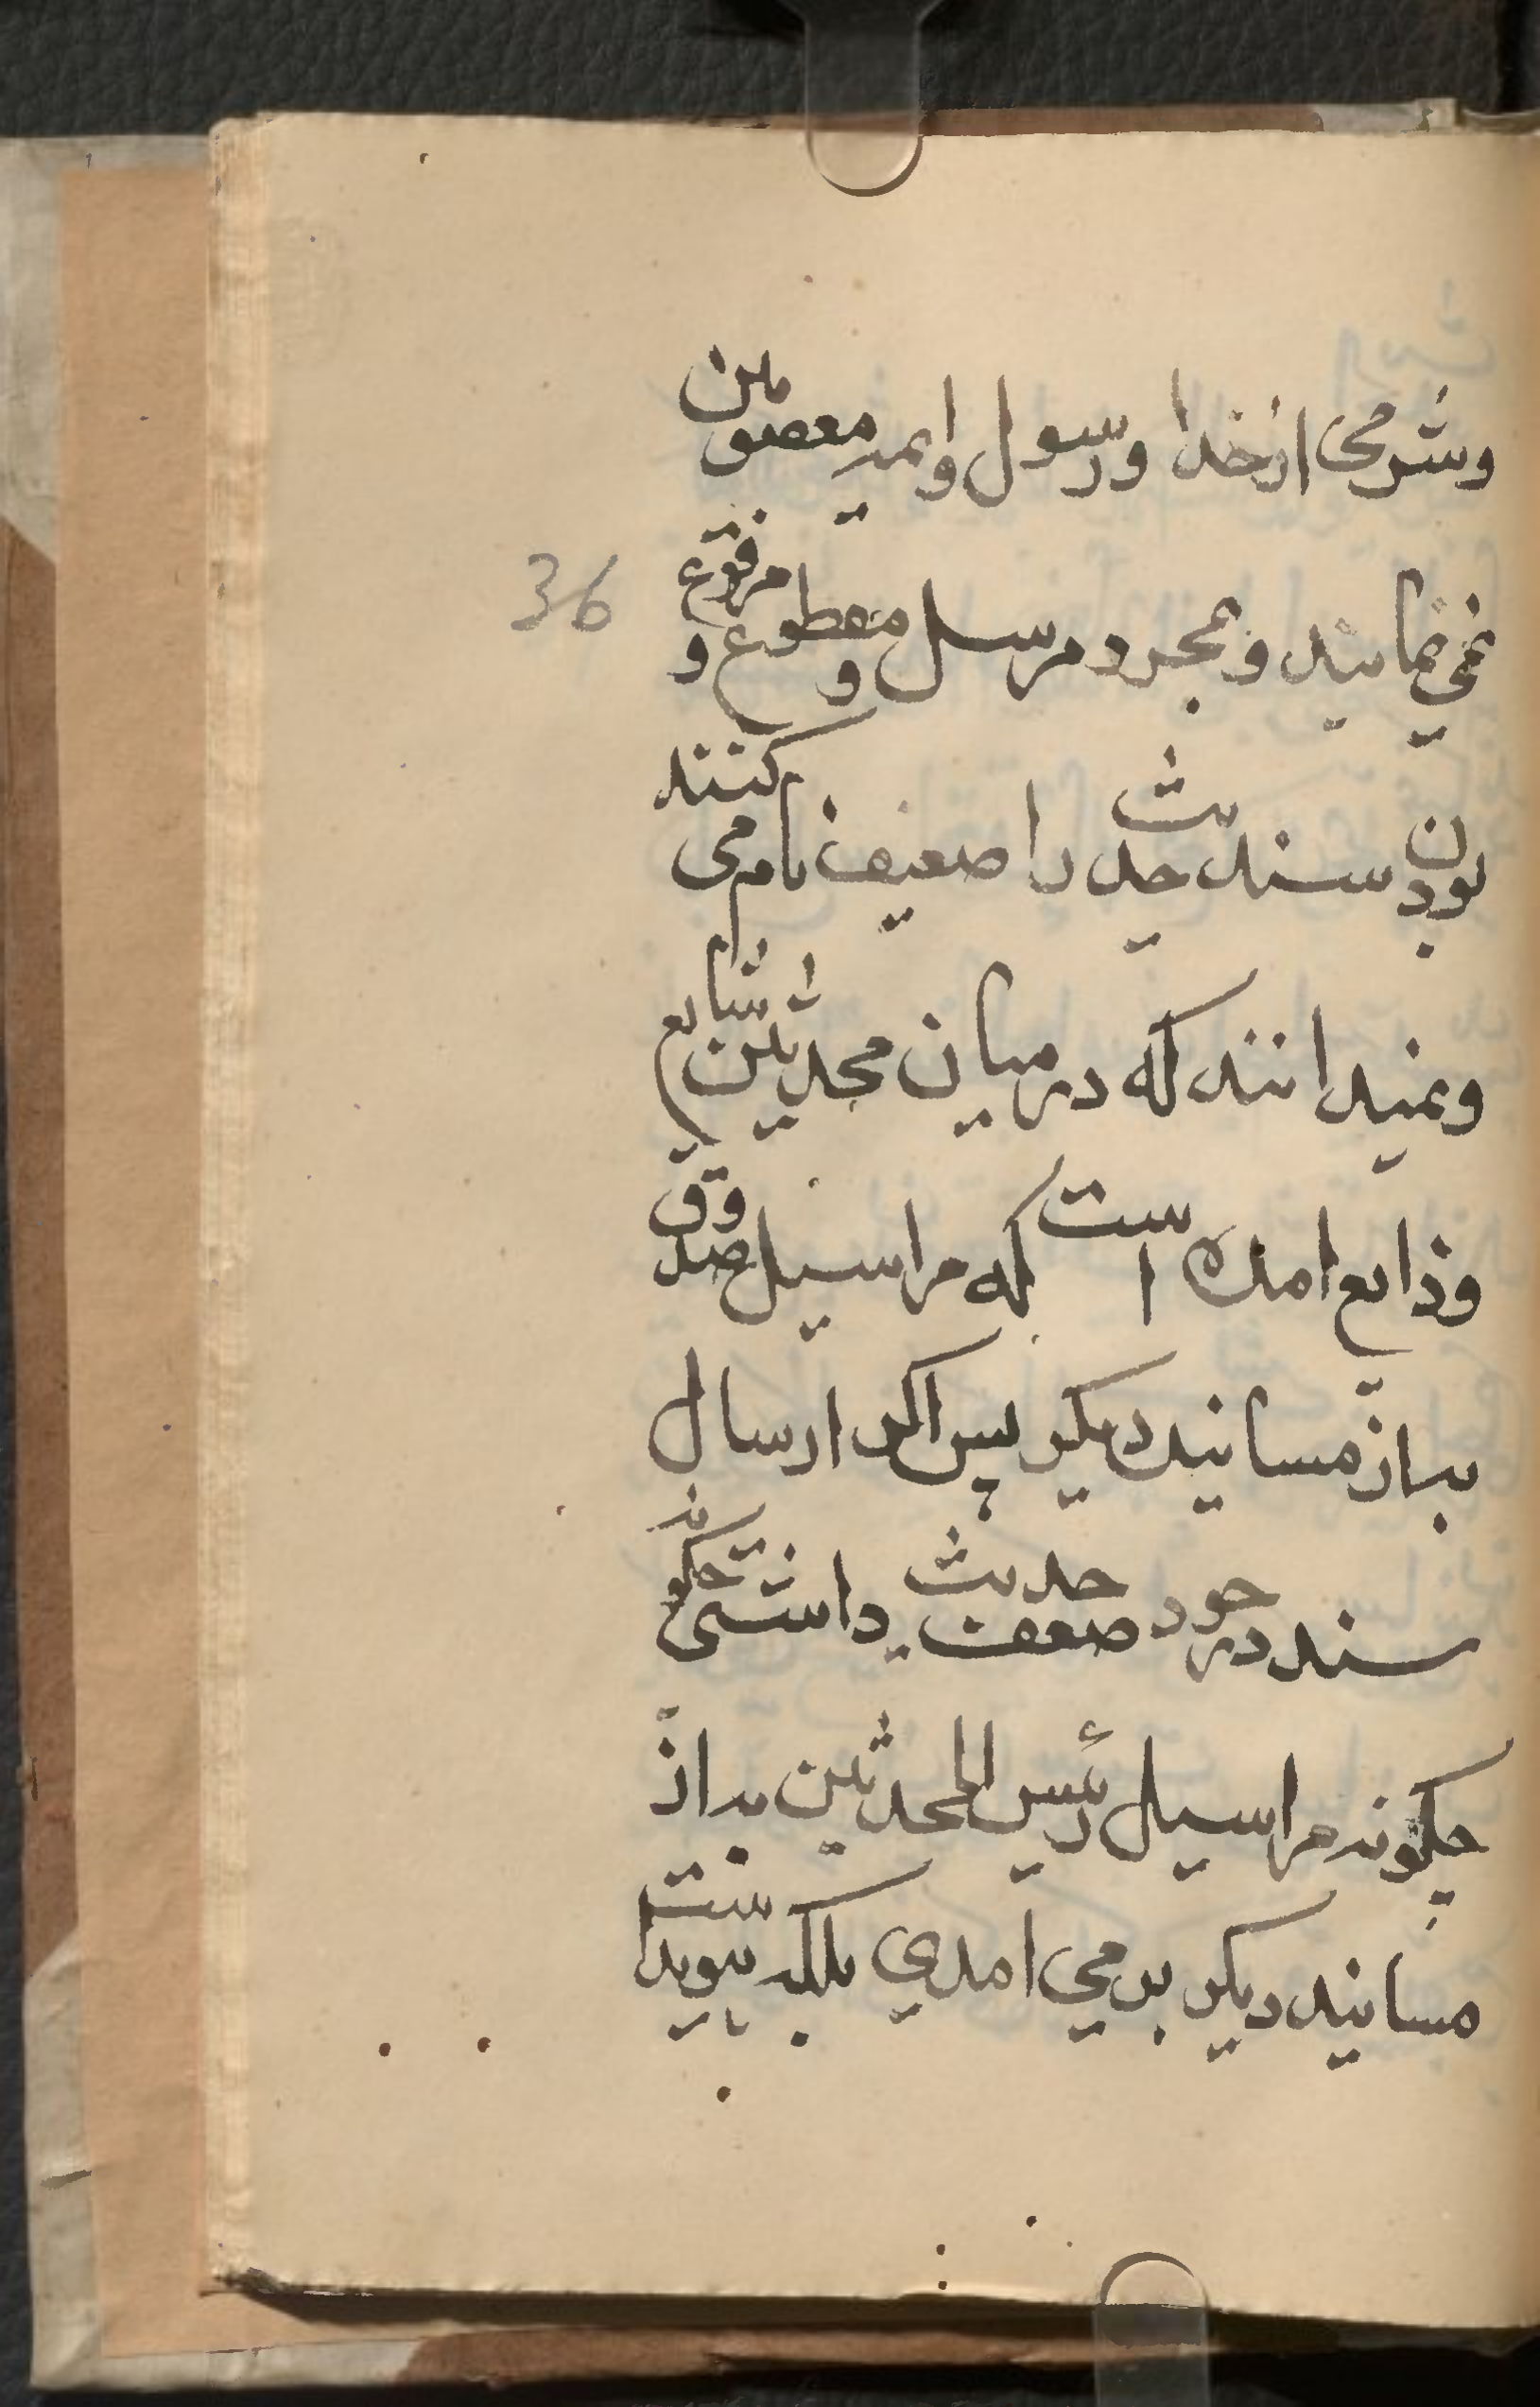 وشرمی ازخدا ورسول وایمه معصومین
36
نمی نمایند وبمجرد مرسل و مقطوع و مرفوع
بودن سند حدیث را ضعیف نام می کنند
ونمیدانند که در میان محدثین شایع
وذایع امده است که مراسیل صدوق
به از مسانید دیکر پس اکر ارسال
سند در خود حدیث ضعف داشتی حکم
چکونه مراسیل رئیس المحدثین به از
مسانید دیکر بر می امدی بلکه